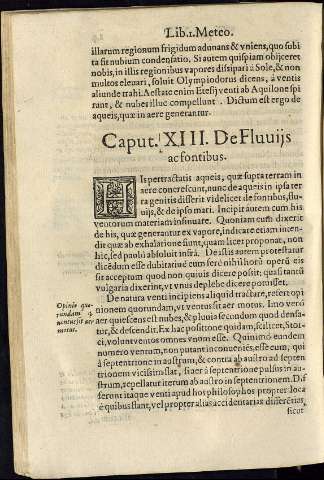 Lib.1. Meteo.
illarum regionum frigidum adunans & vniens, quo subi
ta sit nubium condensatio. Si autem quispiam objiceret
nobis, in illis regionibus vapores dissipari à Sole, & non
multos eleuari, soluit Olympiodorus dicens, à ventis
aliunde trahi. Aestate enim Etesij venti ab Aquilone spi
rant, & nubes illuc compellunt. Dictum est ergo de
aqueis, quæ in aere generantur.
Caput. XIII. De Fluuijs
ac fontibus.
HIs pertractatis aqueis, quæ supra terram in
aere concrescunt, nunc de aqueis in ipsa ter
ra genitis disserit videlicet de fontibus, flu-
uijs, & de ipso mari. Incipit autem cum his
ventorum materiam insinuare. Quoniam cum dixerit
de his, quæ generantur ex vapore, indicare etiam incen-
dit quæ ab exhalatione sunt, quam licet proponat, non
hic, sed paulò absoluit infrà. De istis autem protestatur
dicēdum esse dubitatiuè cum ferè nihil horū operū eis
sit acceptum quod non quiuis dicere possit: quasi tantū
vulgaria dixerint, vt vnus de plebe dicere potuisset.
De natura venti incipiens aliquid tractare, refert opi
nionem quorundam, vt ventus sit aer motus. Imo verò
aer quiescens est nubes, & pluuia secundum quod densa-
tur, & descendit. Ex hac positione quidam, scilicet, Stoi-
ci, volunt ventos omnes vnum esse. Quinimò eundem
numero ventum, non putant inconueniēs esse cum, qui
à septentrione in austrum, & contra ab austro ad septen
trionem vicissim flat, si aer à septentrione pulsus in au-
strum, repellatur iterum ab austro in septentrionem. Dif
ferunt itaque venti apud hos philosophos propter loca
è quibus flant, vel propter alias accidentarias differētias,
sicut
Opinio quo-
rundam q
ventus sit aer
motus.